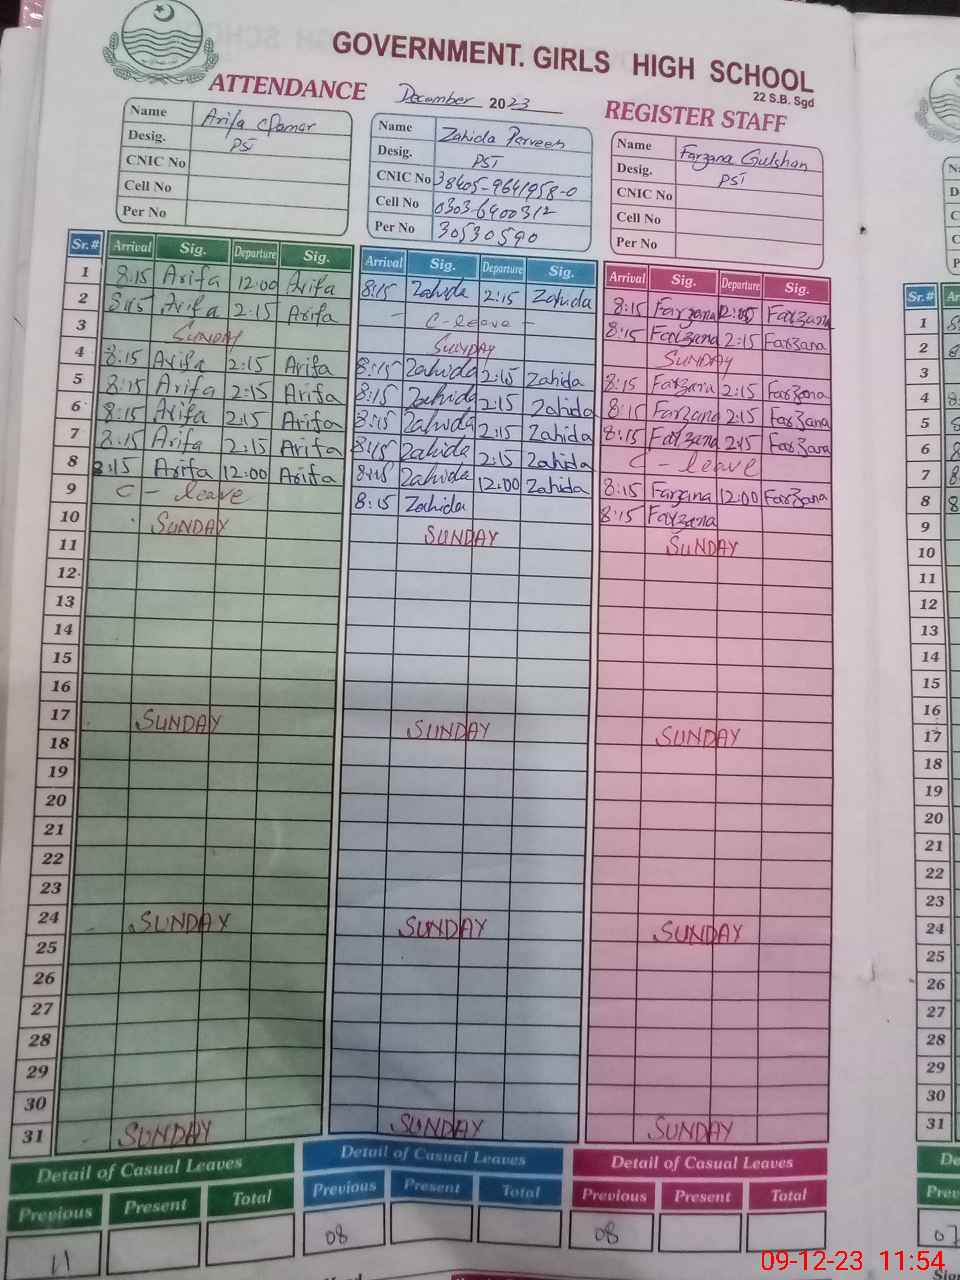 GOVERNMENT. GIRLS HIGH SCHOOL
22 S.B. Sgd
ATTENDANCE December 2023 REGISTER STAFF
Name Arifa
Desig. PST
CNIC No
Cell No
Per No
Name Zahida Parveen
Desig. PST
CNIC No 38405-9641958-0
Cell No 0303-6400312
Per No 30530590
Name Farzana Gulshan
Desig. PST
CNIC No
Cell No
Per No
Sr.# Arrival Sig. Departure Sig. Arrival Sig. Departure Sig. Arrival Sig. Departure Sig.
1 8:15 Arifa 12:00 Arifa 8:15 Zahida 2:15 Zahida 8:15 Farzana Farzana
2 8:15 Arifa 2:15 Arifa - C-leave - 8:15 Farzana 2:15 Farzana
3 SUNDAY SUNDAY SUNDAY
4 8:15 Arifa 2:15 Arifa 8:15 Zahida 2:15 Zahida 8:15 Farzana 2:15 Farzana
5 8:15 Arifa 2:15 Arifa 8:15 Zahida 2:15 Zahida 8:15 Farzana 2:15 Farzana
6 8:15 Arifa 2:15 Arifa 8:15 Zahida 2:15 Zahida 8:15 Farzana 2:15 Farzana
7 8:15 Arifa 2:15 Arifa 8:15 Zahida 2:15 Zahida C - leave
8 8:15 Arifa 12:00 Arifa 8:15 Zahida 12:00 Zahida 8:15 Farzana 12:00 Farzana
9 C - leave 8:15 Zahida 8:15 Farzana
10 SUNDAY SUNDAY SUNDAY
11
12
13
14
15
16
17 SUNDAY SUNDAY SUNDAY
18
19
20
21
22
23
24 SUNDAY SUNDAY SUNDAY
25
26
27
28
29
30
31 SUNDAY SUNDAY SUNDAY
Detail of Casual Leaves Detail of Casual Leaves Detail of Casual Leaves
Previous Present Total Previous Present Total Previous Present Total
11 08 08
Sr.#
1
2
3
4
5
6
7
8
9
10
11
12
13
14
15
16
17
18
19
20
21
22
23
24
25
26
27
28
29
30
31
09-12-23 11:54